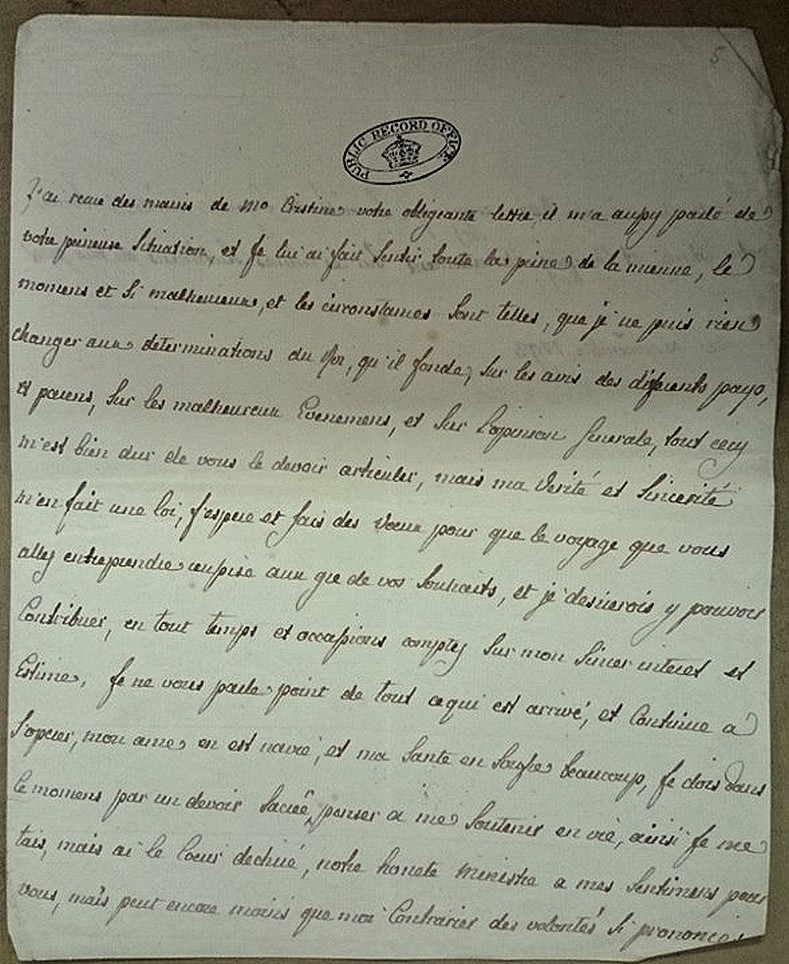 5
PUBLIC RECORD OFFICE
J'ai recue des mains de votre obligeante lettre il m'a aussy parlé de
votre peineuse Situation, et Je lui ai fait Sentir toute la peine de la mienne, le
momens et Si malheureux, et les circonstances Sont telles, que je ne puis rien
changer aux determinations du qu'il fonde, Sur les avis des differents pays,
et Sur les malheureux Evenemens, et Sur l'opinion Generale, tout cecy
m'est bien dur de vous le devoir articuler, mais ma Verité et Sincerité
m'en fait une loi, J'espere et fais des Voeux pour que le voyage que vous
allez entreprendre aux gré de vos Souhaits, et je desirerois y pouvoir
Contribuer, en tout temps et occassions comptez Sur mon Sincer interet et
Estime, Je ne vous parle point de tout ce qui est arrivé, et Continue a
S'operer, mon ame en est navré, et ma Santé en Soufre beaucoup, Je dois dans
ce momens par un devoir Sacré, penser a me Soutenir en vie, ainsi Je me
tais, mais ai le Coeur dechiré, notre honete Ministre a mes Sentimens pour
vous, mais peut encore moins que moi Contrarier des volontés Si